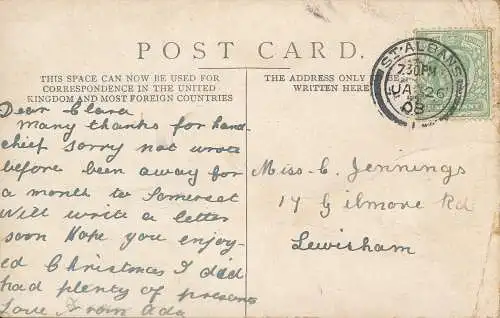 POST CARD.
THIS SPACE CAN NOW BE USED FOR
CORRESPONDENCE IN THE UNITED
KINGDOM AND MOST FOREIGN COUNTRIES
THE ADDRESS ONLY
WRITTEN HERE
ST ALBANS
7 30 PM
JA 26
08
Dear Clara
Many thanks for hand-
chief sorry not wrote
before been away for
a month to Somerset
Will write a letter
soon Hope you enjoy-
ed Christmas I did
had plenty of presents
Love from Ada
Miss C. Jennings
17 Gilmore Rd
Lewisham